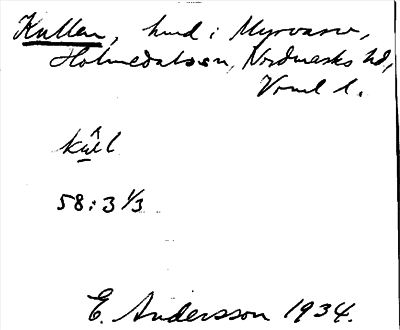 Kullen, hmd i Myrvarw,
Holmedals sn, Nordmarks hd,
Vrml l.
kul̂l
58:3 1/3
E. Andersson 1934.